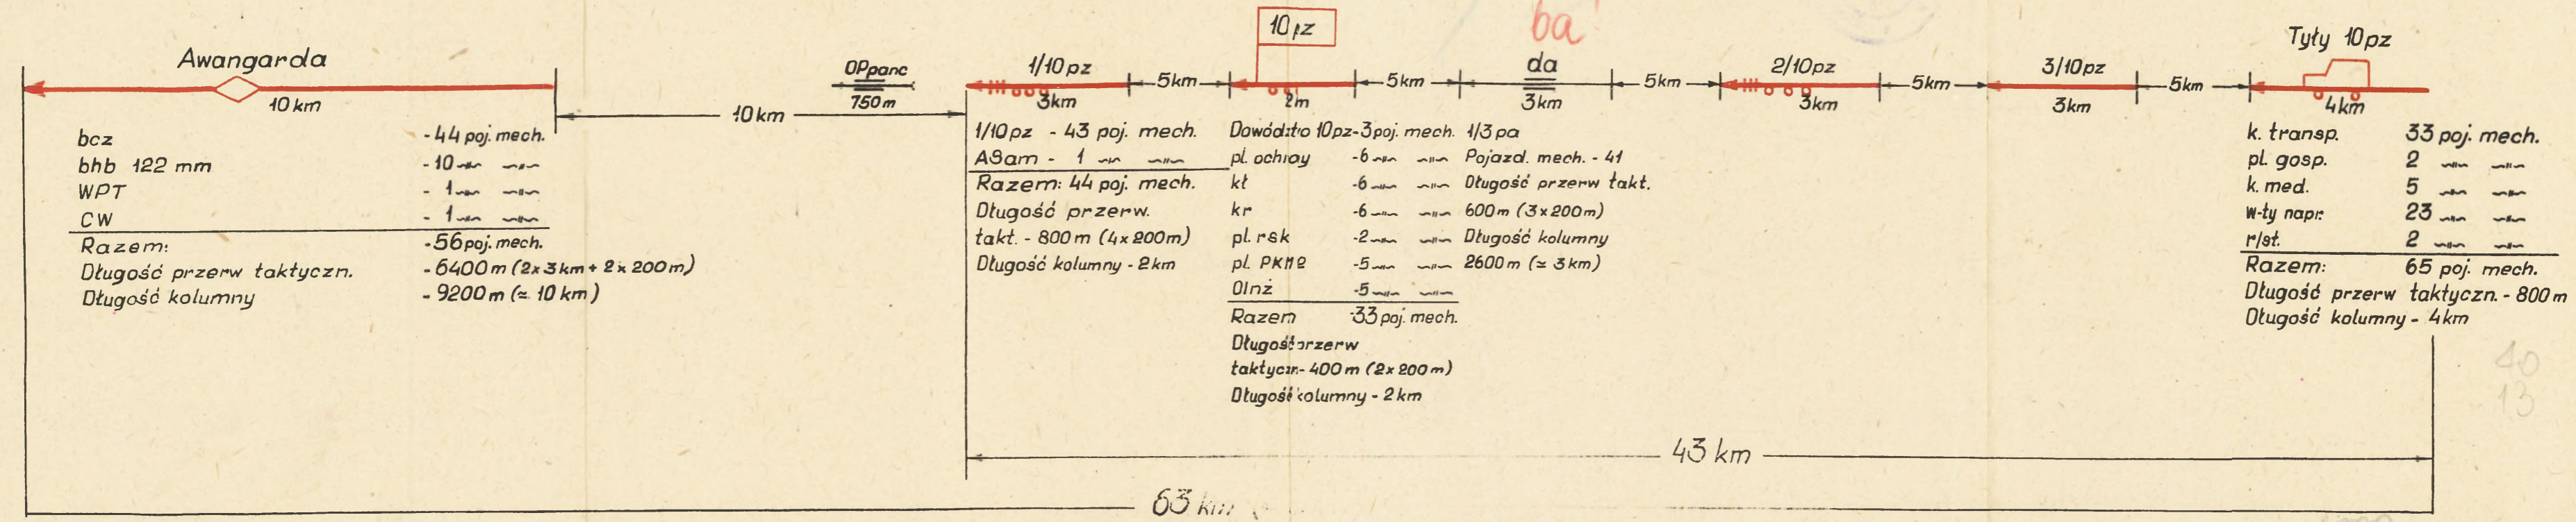 Awangarda
10 km
bcz - 44 poj. mech.
bhb 122 mm - 10 -"- -"-
WPT - 1 -"- -"-
CW - 1 -"- -"-
Razem: - 56 poj. mech.
Długość przerw taktyczn. - 6400 m (2 x 3 km + 2 x 200 m)
Długość kolumny - 9200 m (≈ 10 km)
10 km
OPpanc
750 m
1/10 pz
3km
1/10 pz - 43 poj. mech.
ASam - 1 -"- -"-
Razem: 44 poj. mech.
Długość przerw.
takt. - 800 m (4 x 200 m)
Długość kolumny - 2 km
5km
10 pz
2m
Dowódz
10 pz - 3 poj. mech.
pl. ochrony - 6 -"- -"-
kł - 6 -"- -"-
kr - 6 -"- -"-
pl. rsk - 2 -"- -"-
pl. PKM - 5 -"- -"-
OInż - 5 -"- -"-
Razem - 33 poj. mech.
Długość przerw
taktyczn - 400 m (2 x 200 m)
Długość kolumny - 2 km
5km
ba
da
3km
1/3 pa
Pojazd. mech. - 41
Długość przerw takt.
600 m (3 x 200 m)
Długość kolumny
2600 m (≈ 3 km)
5km
2/10 pz
3km
5km
3/10 pz
3km
5km
Tyły 10 pz
4km
k. transp. 33 poj. mech.
pl. gosp. 2 -"- -"-
k. med. 5 -"- -"-
w-ty napr. 23 -"- -"-
r/st. 2 -"- -"-
Razem: 65 poj. mech.
Długość przerw taktyczn. - 800 m
Długość kolumny - 4 km
40
13
43 km
63 km